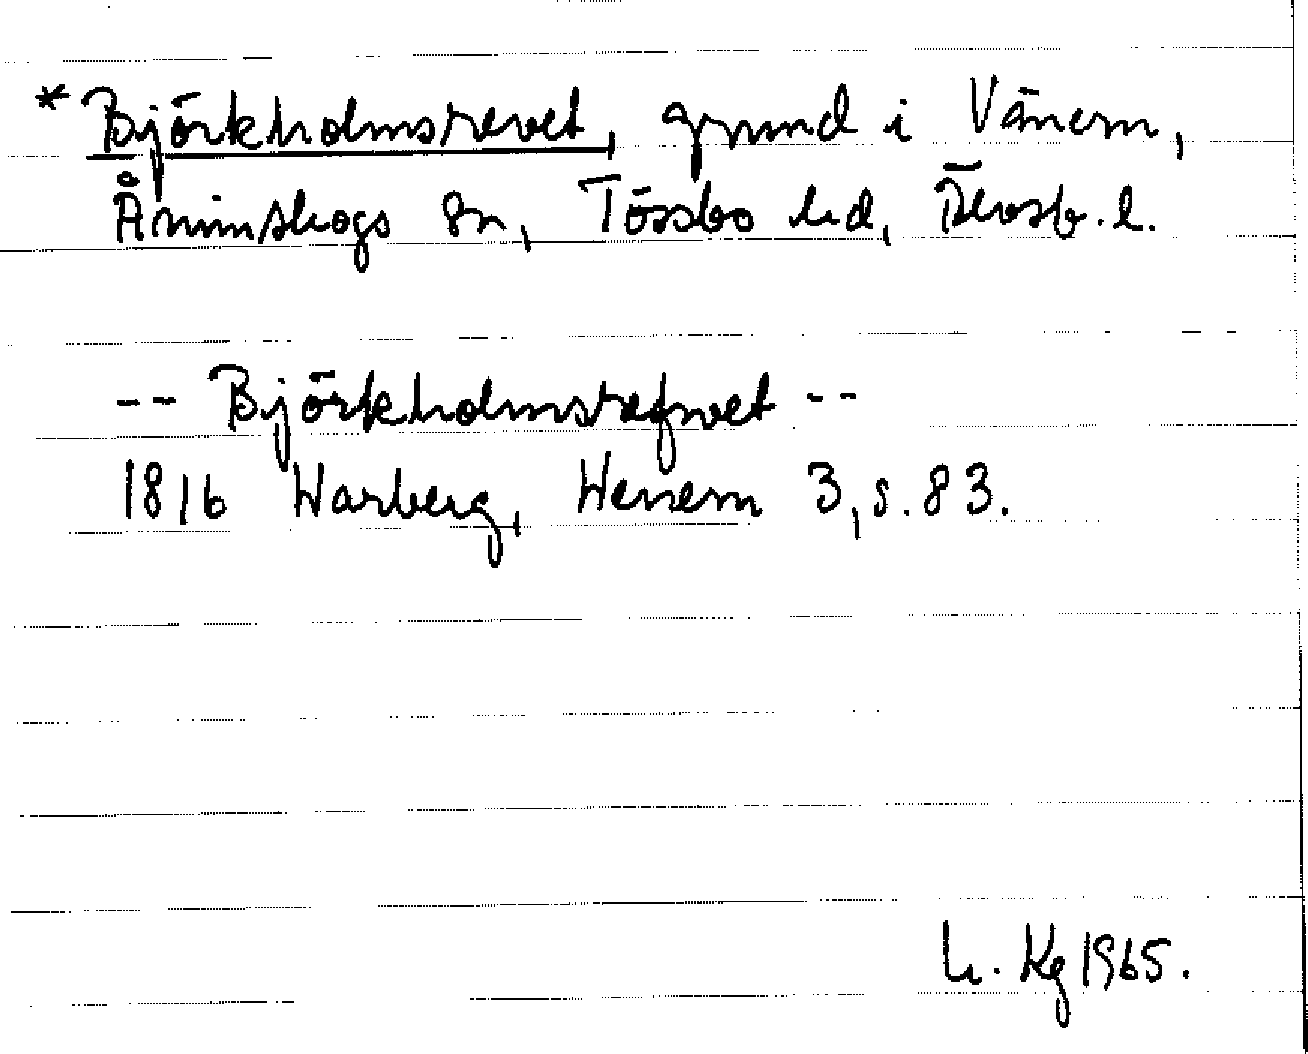 * Björkholmsrevet, grund i Vänern,
Ånimskogs sn, Tössbo hd, Älvsb. l.
-- Björkholmsrefwet --
1816 Warberg, Wenern 3, s. 83.
L. Kg 1965.